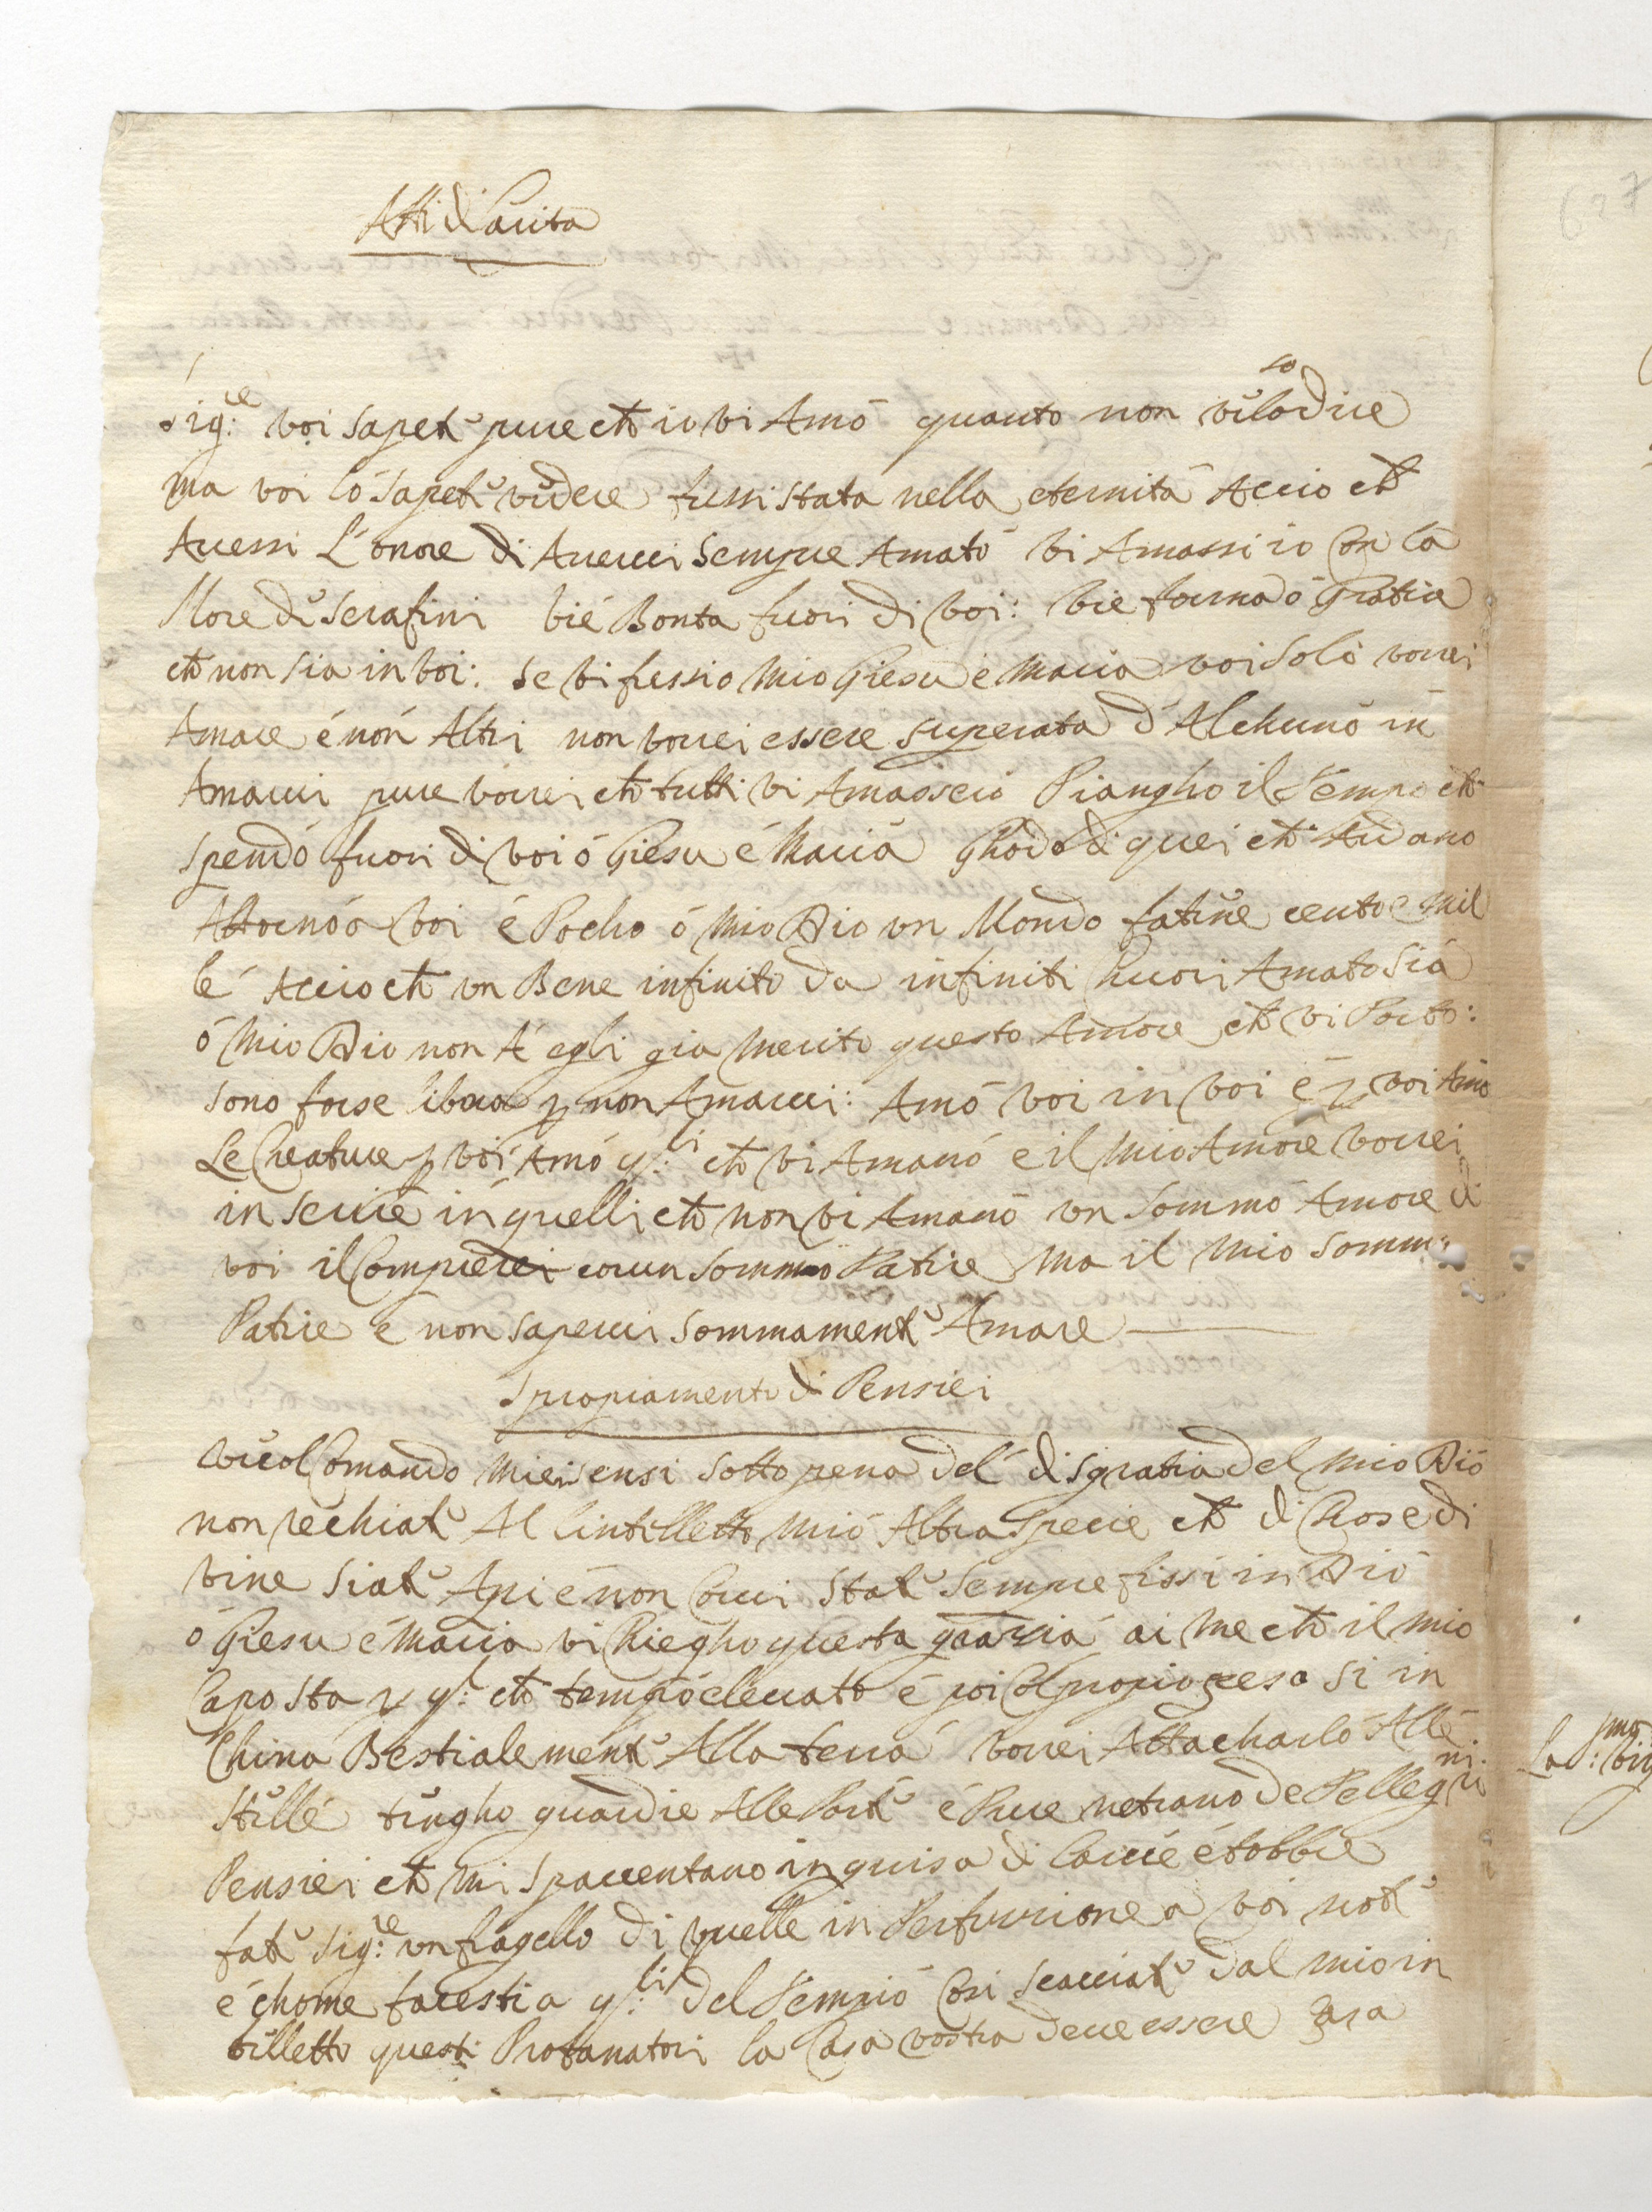 Atti di Carita
Sig:re voi sapete pure che io vi Amo quanto non velo so dire
ma voi lo sapete vedere fussi stata nella eternità Accio che
Avessi L'onore di Avervi Sempre Amato vi Amassi io Con la
More de Serafini vié Bonta fuori di voi: vie forma o Gratia
che non sia in voi: se vi fussio mio Giesu e Maria voi solo vorrei
Amare é non Altri non vorrei essere superata d'Alchuno in
Amarvi pure vorrei che tutti vi Amassero Piangho il Tempo che
spendo fuori di voi ó Giesu é Maria Ghodo di quei che Ardano
Attorno á voi é Pocho ó mio Dio un Mondo fatene cento e mil
lé Accio che un Bene infinito da infiniti Chuori Amato sia
ó Mio Dio non á egli gia merito questo Amore che vi Porto:
sono forse libera p non Amarvi: Amo voi in voi é p voi Amo
Le Creature p voi Amo q:li che vi Amano e il mio Amore vorrei
inserire in quelli che non vi Amano un sommo Amore di
voi il Comprerei corun sommo Patire ma il mio sommo
Patire é non sapervi sommamente Amare
Spropiamento di Pensieri
Comando miei sensi sotto pena del disgratia del mio Dio
non rechiate Al lintelletto mio Altra specie che di Chose di
vine siate Api é non Corvi state sempre fissi in Dio
ó Giesu é Maria vi Chiegho questa grazia ai me che il mio
Capo sta p q: che tempo elevato é poi Col propio peso si in
China Bestialemente Alla terra vorrei Attacharlo Alle
stelle tengho guardie Alle Porte é Pure netrano de Pellegri
ni
Pensieri che mi spaventano in guisa di Larve é tobbre
fate Sig:re un fragello di quelle in Perfurzione a voi note
é chome facesti a q:li del Tempio Cosi scacciate dal mio in
telletto questi Profanatori la Casa vostra deve essere Casa